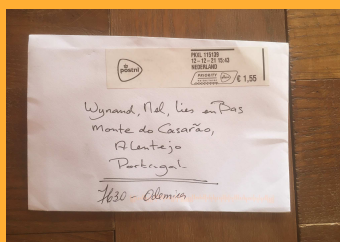 postnl
PKXL 115139
12-12-21 15:43
NEDERLAND
PRIORITY
€ 1,55
Wynand, Mel, Lies en Bas
Monte do Casarão,
Alentejo
Portugal
7630 - Odemira